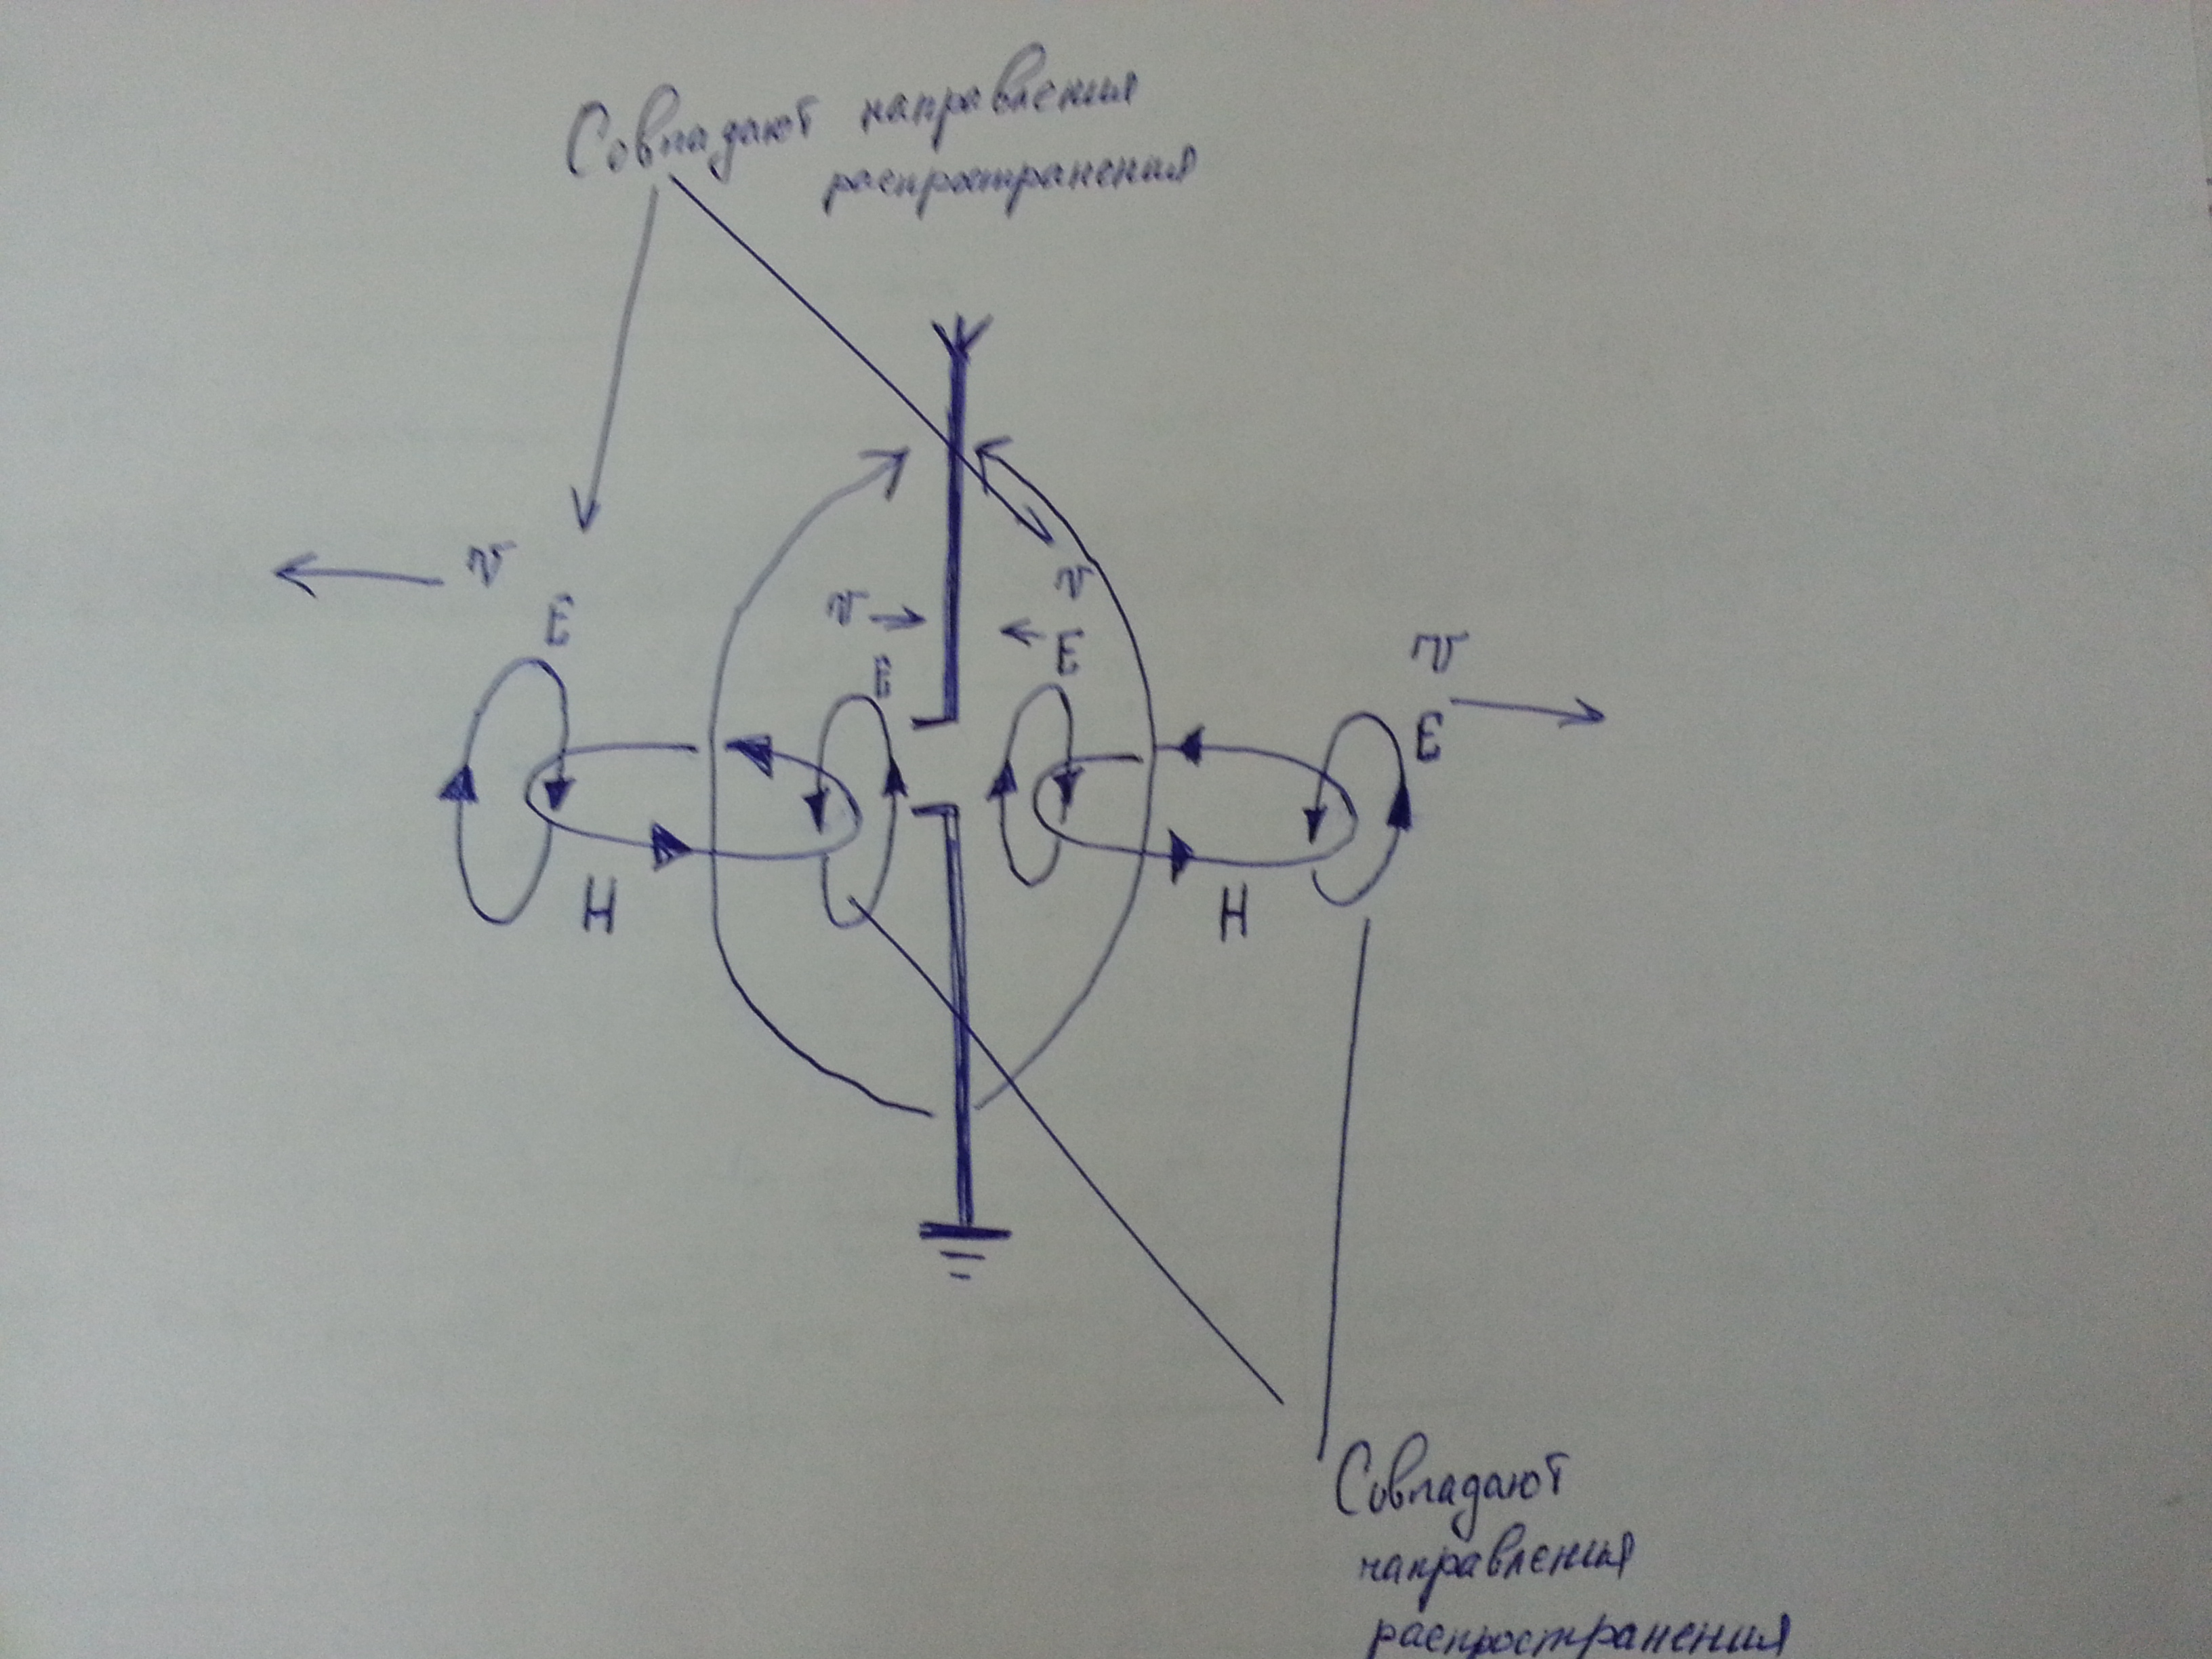 Совпадают направления
распространения
v
E
v
v
E
E
v
E
H
H
Совпадают
направления
распространения